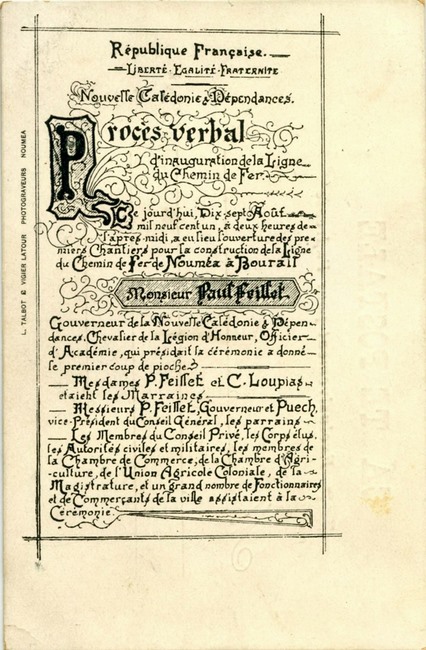 République Française.
LIBERTÉ · EGALITÉ · FRATERNITE
Nouvelle Calédonie & Dépendances.
Procès verbal
d'inauguration de la Ligne
du Chemin de Fer.
Ce jourd'hui, Dix-sept Août
mil neuf cent un, à deux heures de
l'après-midi, a eu lieu l'ouverture des pre-
miers Chantiers pour la construction de la Ligne
du Chemin de Fer de Nouméa à Bourail
Monsieur Paul Feillet
Gouverneur de la Nouvelle Calédonie & Dépen-
dances. Chevalier de la Légion d'Honneur, Officier
d'Académie, qui présidait la cérémonie a donné
le premier coup de pioche.
Mesdames P. Feillet et C. Loupias
étaient les Marraines
Messieurs P. Feillet, Gouverneur et Puech,
vice-Président du Conseil Général, les parrains
Les Membres du Conseil Privé, les Corps élus,
les Autorités civiles et militaires, les membres de
la Chambre de Commerce, de la Chambre d'Agri-
culture, de l'Union Agricole Coloniale, de la
Magistrature, et un grand nombre de Fonctionnaires
et de Commerçants de la ville assistaient à la
Cérémonie.
L. TALBOT & VIGIER LATOUR PHOTOGRAVEURS NOUMEA